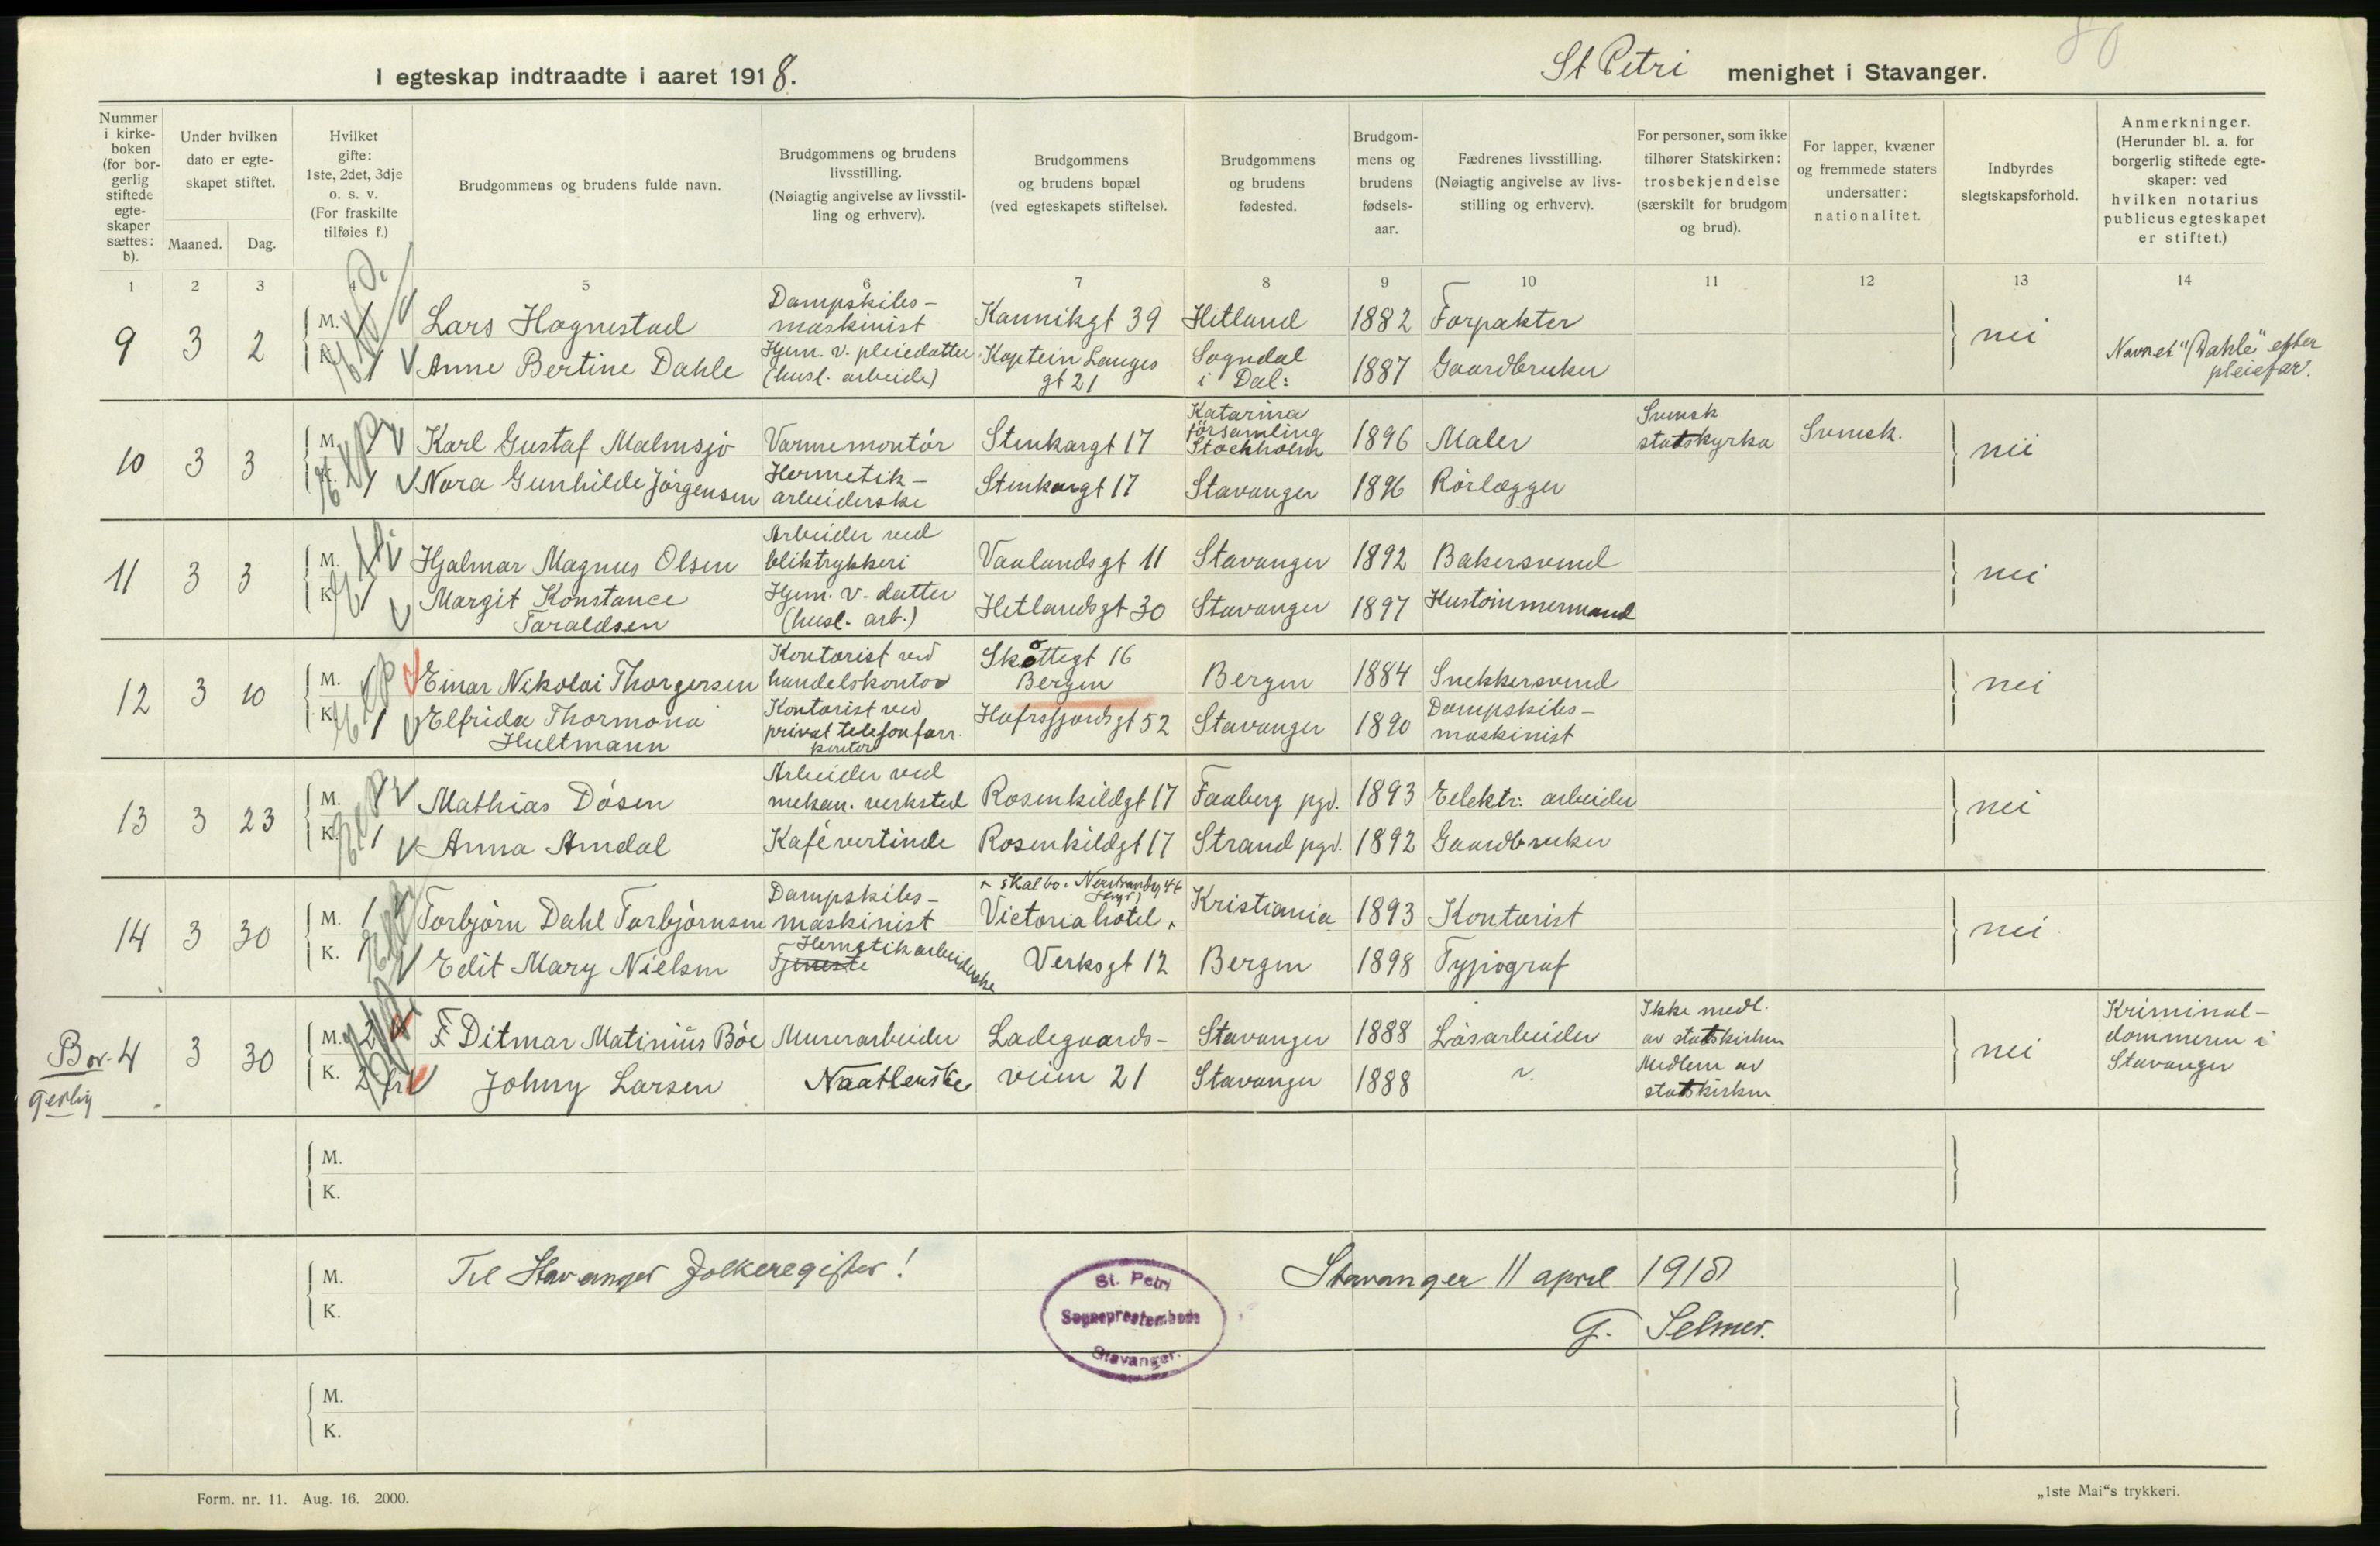 I egteskap indtraadte i aaret 1918.
St Petri menighet i Stavanger.
Nummer i kirkeboken (for borgerlig stiftede egteskaper sættes: b).
Under hvilken dato er egteskapet stiftet.
Maaned. Dag.
Hvilket gifte: 1ste, 2det, 3dje o. s. v. (For fraskilte tilføies f.)
Brudgommens og brudens fulde navn.
Brudgommens og brudens livsstilling. (Nøiagtig angivelse av livsstilling og erhverv).
Brudgommens og brudens bopæl (ved egteskapets stiftelse).
Brudgommens og brudens fødested.
Brudgommens og brudens fødselsaar.
Fædrenes livsstilling. (Nøiagtig angivelse av livsstilling og erhverv).
For personer, som ikke tilhører Statskirken: trosbekjendelse (særskilt for brudgom og brud).
For lapper, kvæner og fremmede staters undersatter: nationalitet.
Indbyrdes slegtskapsforhold.
Anmerkninger. (Herunder bl. a. for borgerlig stiftede egteskaper: ved hvilken notarius publicus egteskapet er stiftet.)
1 2 3 4 5 6 7 8 9 10 11 12 13 14
9 3 2 M. 1 Lars Hognestad Dampskibs-maskinist Kannikgt 39 Hetland 1882 Forpakter nei
K. 1 Anne Bertine Dahle Hjem. v. pleiedatter (husl. arbeide) Kaptein Langes gt 21 Sogndal i Dal: 1887 Gaardbruker Navnet "Dahle" efter pleiefar.
10 3 3 M. 1 Karl Gustaf Malmsjö Varmemontör Stenkargt 17 Katarina församling Stockholm 1896 Maler Svensk statskyrka Svensk. nei
K. 1 Nora Gunhilde Jörgensen Hermetik-arbeiderske Stenkargt 17 Stavanger 1896 Rörlægger
11 3 3 M. 1 Hjalmar Magnus Olsen Arbeider ved bliktrykkeri Vaalandsgt 11 Stavanger 1892 Bakersvend nei
K. 1 Margit Konstance Taraldsen Hjem. v. datter (husl. arb.) Hetlandsgt 30 Stavanger 1897 Hustömmermand
12 3 10 M. 1 Einar Nikolai Thorgersen Kontorist ved handelskontor Skottegt 16 Bergen Bergen 1884 Snekkersvend nei
K. 1 Elfrida Thormona Hultmann Kontorist ved privat telefonforr. kontor Hafrsfjordsgt 52 Stavanger 1890 Dampskibs-maskinist
13 3 23 M. 1 Mathias Dösen Arbeider ved mekan. verksted Rosenkildgt 17 Faaberg pgd. 1893 Eelektr. arbeider nei
K. 1 Anna Amdal Kafévertinde Rosenkildgt 17 Strand pgd. 1892 Gaardbruker
14 3 30 M. 1 Torbjörn Dahl Torbjörnsen Dampskibs-maskinist skal bo. Victoria hotel Kristiania 1893 Kontorist nei
K. 1 Edit Mary Nielsen Tjeneste Hermetikarbeiderske Verksgt 12 Bergen 1898 Typograf
Borgerlig 4 3 30 M. 2 F. Ditmar Matinius Böe Murerarbeider Ladegaards- Stavanger 1888 Låsarbeider Ikke medl. av statskirken nei Kriminal-dommeren i Stavanger
K. 2 Johny Larsen Naatlerske veien 21 Stavanger 1888 Medlem av statskirken.
M.
K.
M. Til Stavanger Folkeregister! Stavanger 11 april 1918
K. G. Selmer.
St. Petri
Sogneprestembede
Stavanger.
M.
K.
Form. nr. 11. Aug. 16. 2000.
„1ste Mai“s trykkeri.